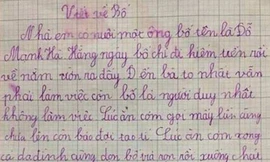 Viết về Bố
Nhà em có nuôi một ông bố tên là Đỗ
Mạnh Hà. Hàng ngày bố chỉ đi hiêm rồi
về nằm ườn ra đây Đến bà to nhất vẫn
phải làm việc còn bố là người duy nhất
không làm việc Lúc ăn cơm gọi mấy lần cũng
chưa lên còn bảo đợi tao tí. Lúc ăn cơm xong
cả đình cùng dọn bố và xuống